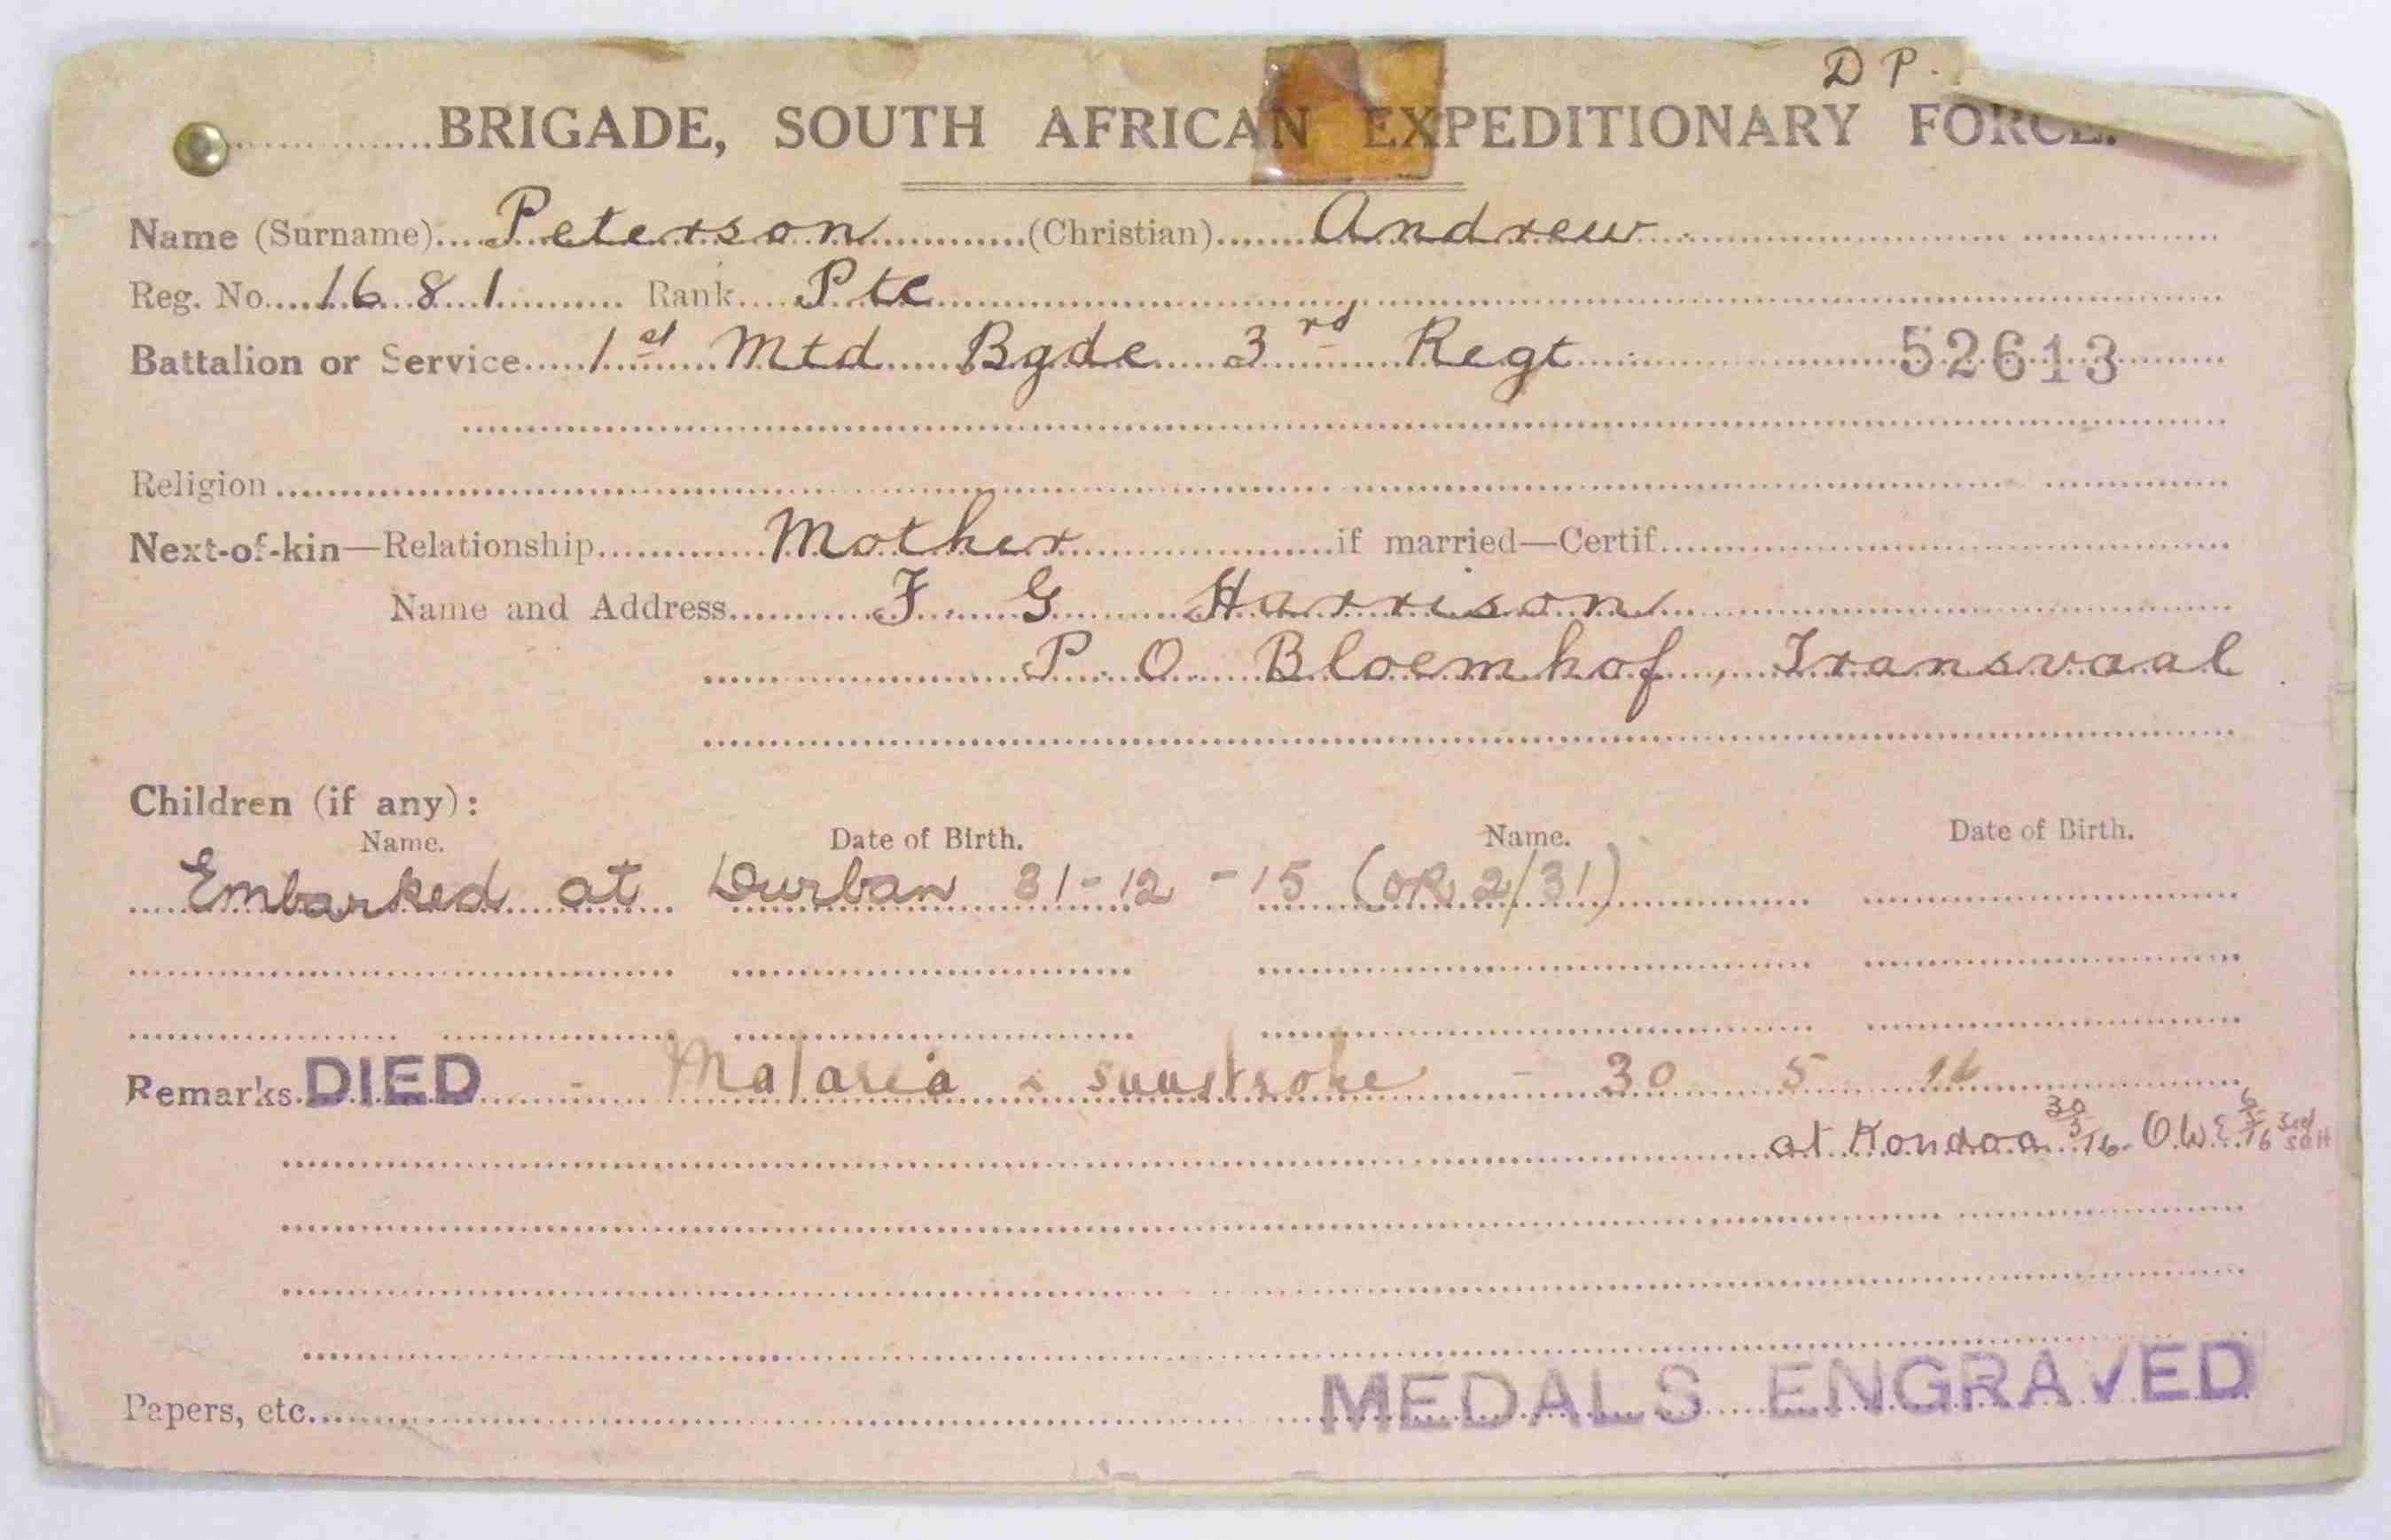 D P.
BRIGADE, SOUTH AFRICAN EXPEDITIONARY FORCE.
Name (Surname) Peterson (Christian) Andrew
Reg. No. 1681 Rank Pte
Battalion or Service 1st Mtd Bgde 3rd Regt 52613
Religion
Next-of-kin—Relationship Mother if married—Certif.
Name and Address F G Harrison
P. O. Bloemhof, Transvaal
Children (if any):
Name. Date of Birth. Name. Date of Birth.
Embarked at Durban 31-12-15 (OR 2/31)
Remarks DIED - Malaria & sunstroke - 30 5 16
at Kondoa 30/5/16. O.W.E. 3rd SAH
Papers, etc. MEDALS ENGRAVED